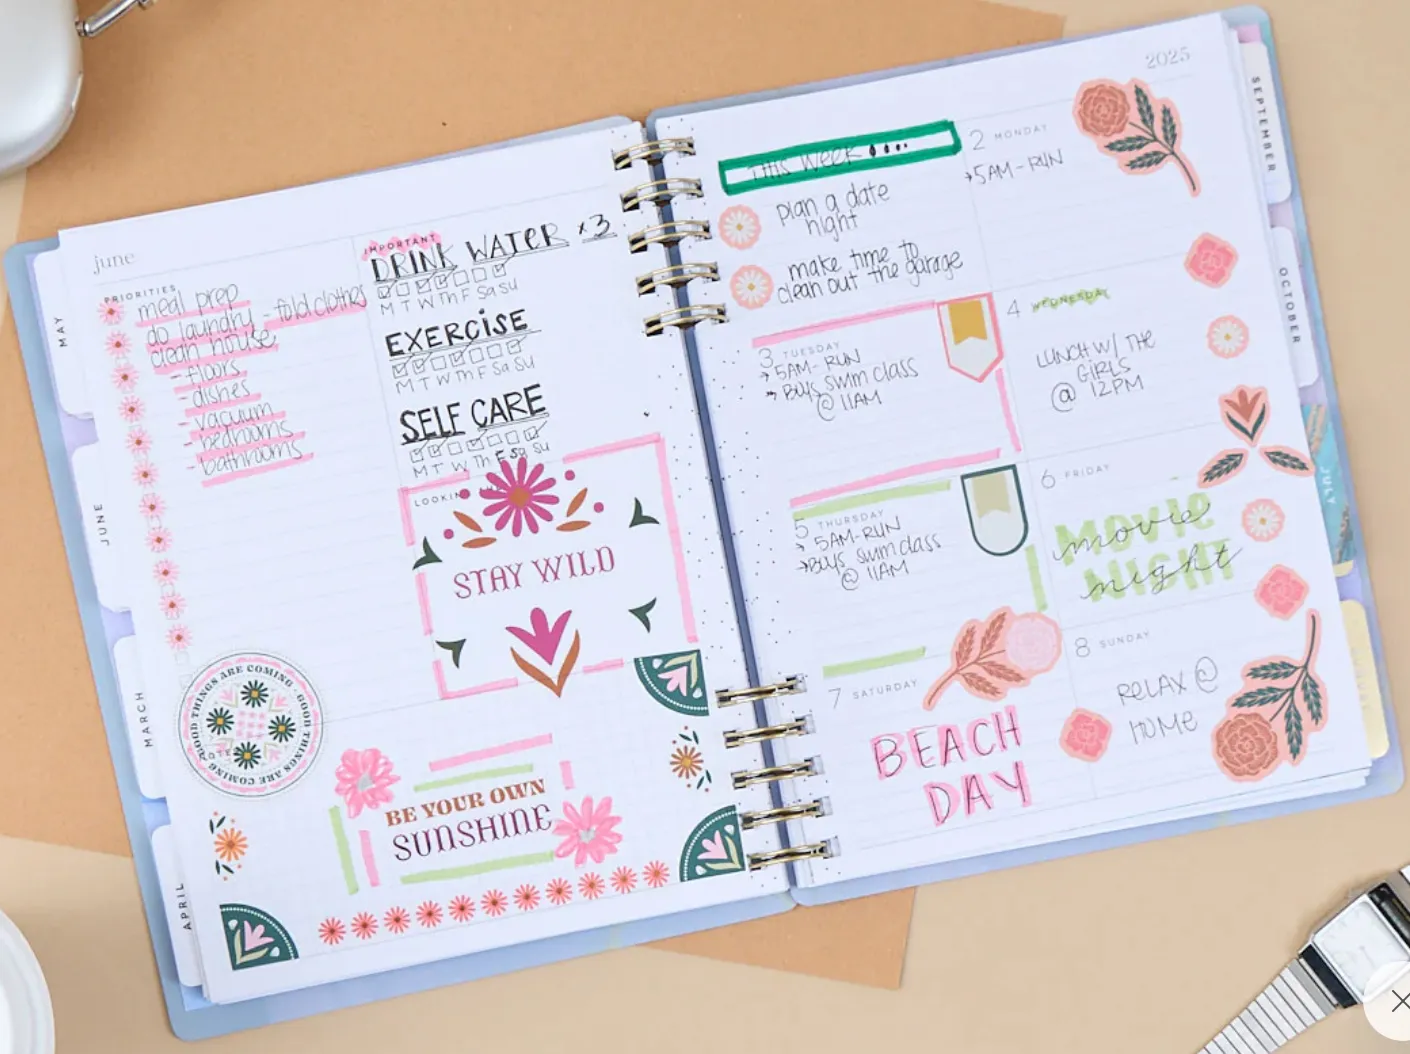 june
PRIORITIES
meal prep
do laundry - fold clothes
clean house
- floors
- dishes
- vacuum
- bedrooms
- bathrooms
IMPORTANT
DRINK WATER x3
M T W Th F Sa Su
EXERCISE
M T W Th F Sa Su
SELF CARE
M T W Th F Sa Su
STAY WILD
GOOD THINGS ARE COMING · GOOD THINGS ARE COMING
BE YOUR OWN
SUNSHINE
MAY
JUNE
MARCH
APRIL
2025
This Week
plan a date
night
make time to
clean out the garage
2 MONDAY
→ 5AM - RUN
3 TUESDAY
→ 5AM - RUN
→ Boys swim class
@ 11AM
4 WEDNESDAY
LUNCH W/ THE
GIRLS
@ 12PM
5 THURSDAY
→ 5AM - RUN
→ Boys swim class
@ 11AM
6 FRIDAY
MOVIE
movie
NIGHT
night
7 SATURDAY
BEACH
DAY
8 SUNDAY
RELAX @
HOME
SEPTEMBER
OCTOBER
JULY